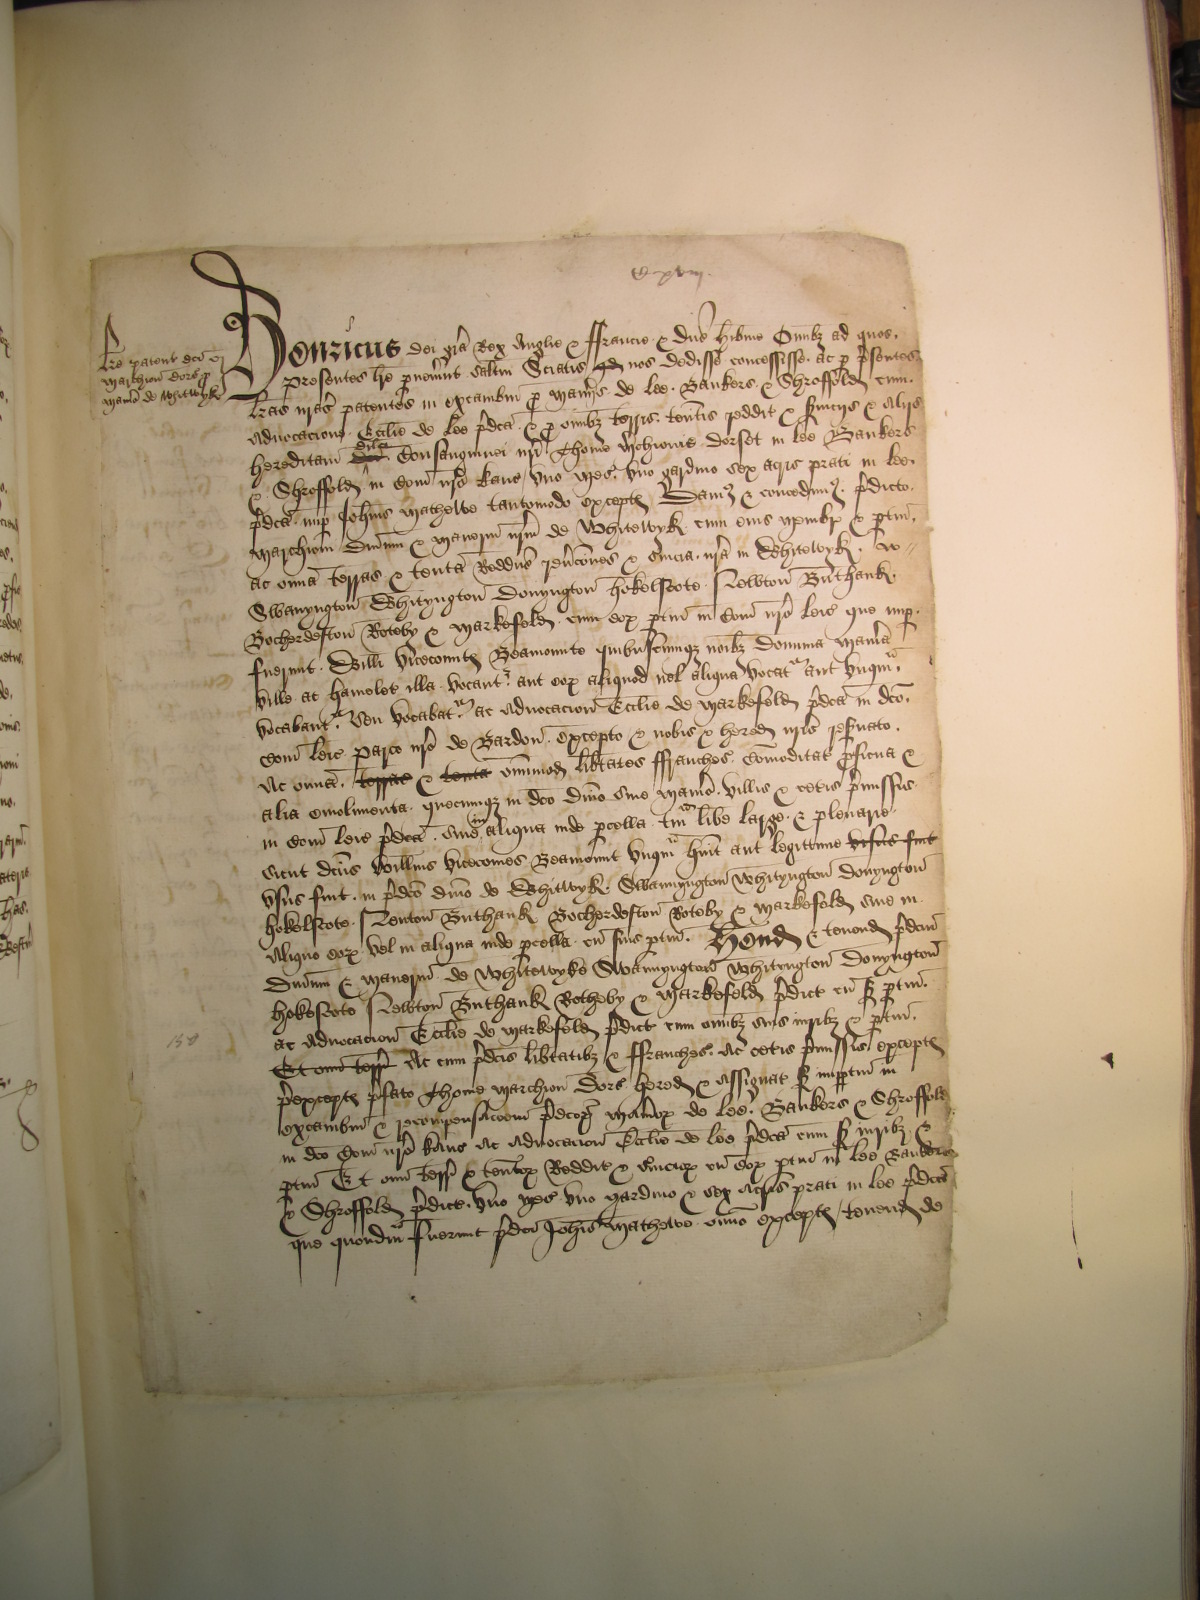 Henricus dei gra Rex Anglie & ffrancie & dns hibnie Omibz ad quos
presentes lre pvenint saltm Sciatis qd nos dedisse concessisse ac p psentes
lras nras patentes in excambiu p manijs de lee Bankers & Shroffold cum
Advocacione Ecclie de lee pdca & p omibz terris tentis reddit & suicijs & alijs
hereditam dilci Consanguinei nri Thome mchionis dorset in lee Bankers
& Shroffold in Com nro Kanc uno mes uno gardino sex acris prati in lee
pdca nup Johnis mathewe tantomodo except Dam9 & concedim9 pdicto
marchioni dnium & maneriu nrm de Whitewyk cum suis membr & ptin
ac omia terras & tenta Redditus reucones & suicia nra in Whitewyk
Swanyngton Whityngton Donyngton hokelscote Newton Buthank
Bocherdeston Roteby & markefeld cum eox ptin in Com nro leic que nup
fuerunt Willi vicecomitis Beamounte quibuscumqz noibz domina mania
ville ac hamelet illa vocant aut eox aliquod vel aliqua vocat aut unqm
vocabant seu vocabat ac advocacion Ecclie de markefeld pdca in dco
Com leic parco nro de Bardon excepto & nobis & hered nris reseuato
Ac omia terras & tenta omimod libtates ffranches comoditat pficua &
alia emolimenta quecumqz in dco dnio siue manio villis & cetis pmissis
in Com leic pdca siue in aliqua inde pcella tm libe large & plenarie
sicut dcus Willms vicecomes Beamount unqm huit aut legittime usus fuit
usus fuit in pdco dnio de Whitwyk Swannyngton Whityngton donyngton
hokelscote Newton Buthank Bocherdeston Roteby & markefeld siue in
aliquo eox vel in aliqua inde pcella cu suis ptin Hend & tenend pdcm
dnium & maneriu de Whitewyke Swannyngton Whityngton Donyngton
hokescote Newton Buthank Rotheby & markefeld pdict cu s ptin
ac advocacion Ecclie de markefeld pdict cum omibz suis iuribz & ptin
Et omi terr Ac cum pdcis libtatibz & ffranches Ac cetis pmissis except
pexcept pfato Thome marchion Dors hered & assignat s imppm in
excambiu & recompensacoem pdcor manior de lee Bankers & Shroffold
in dco Com nro kanc ac advocacion Ecclie de lee pdca cum s iuribz &
ptin Et omi terr & tentor Reddit & suicior cu eor ptin in lee Bankers
& Shroffold pdict uno mes uno gardino & sex acris prati in lee pdca
que quondm fuerunt pdci Johis Mathewe omio except tenend de
lre patent dci
marchion dors p
manio de Whitwyk
150